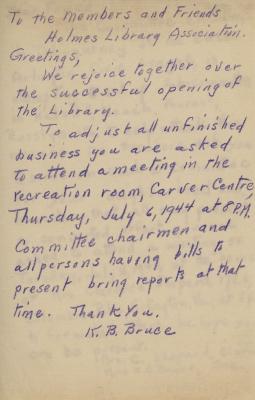 To the Members and Friends
Holmes Library Association.
Greetings,
We rejoice together over
the successful opening of
the Library.
To adjust all unfinished
business you are asked
to attend a meeting in the
recreation room, Carver Centre,
Thursday, July 6, 1944 at 8 P.M.
Committee chairmen and
all persons having bills to
present bring reports at that
time. Thank You.
K. B. Bruce